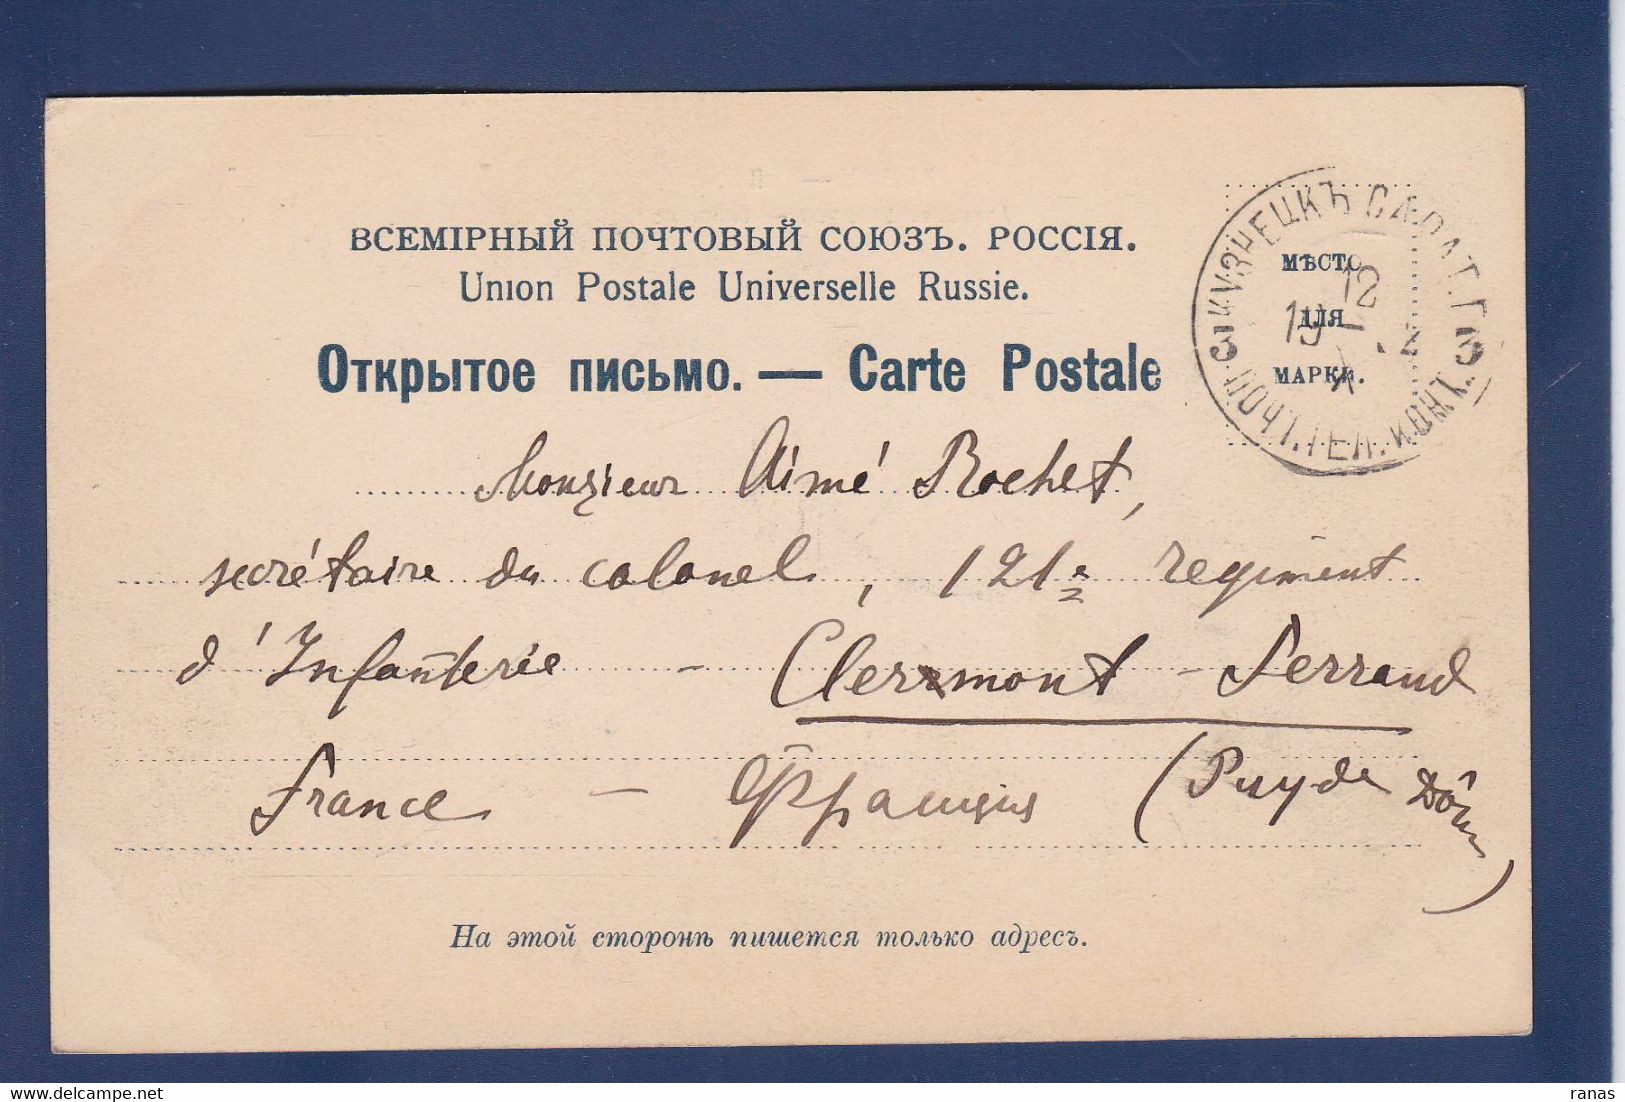 ВСЕМІРНЫЙ ПОЧТОВЫЙ СОЮЗЪ. РОССІЯ.
Union Postale Universelle Russie.
Открытое письмо. — Carte Postale
МѢСТО
ДЛЯ
МАРКИ.
КУЗНЕЦКЪ САРАТ. Г.
Monsieur Aimé Rochet,
secrétaire du colonel, 121e regiment
d'Infanterie - Clermont-Ferrand
France - Франція (Puy de Dôme)
На этой сторонѣ пишется только адресъ.
ranas